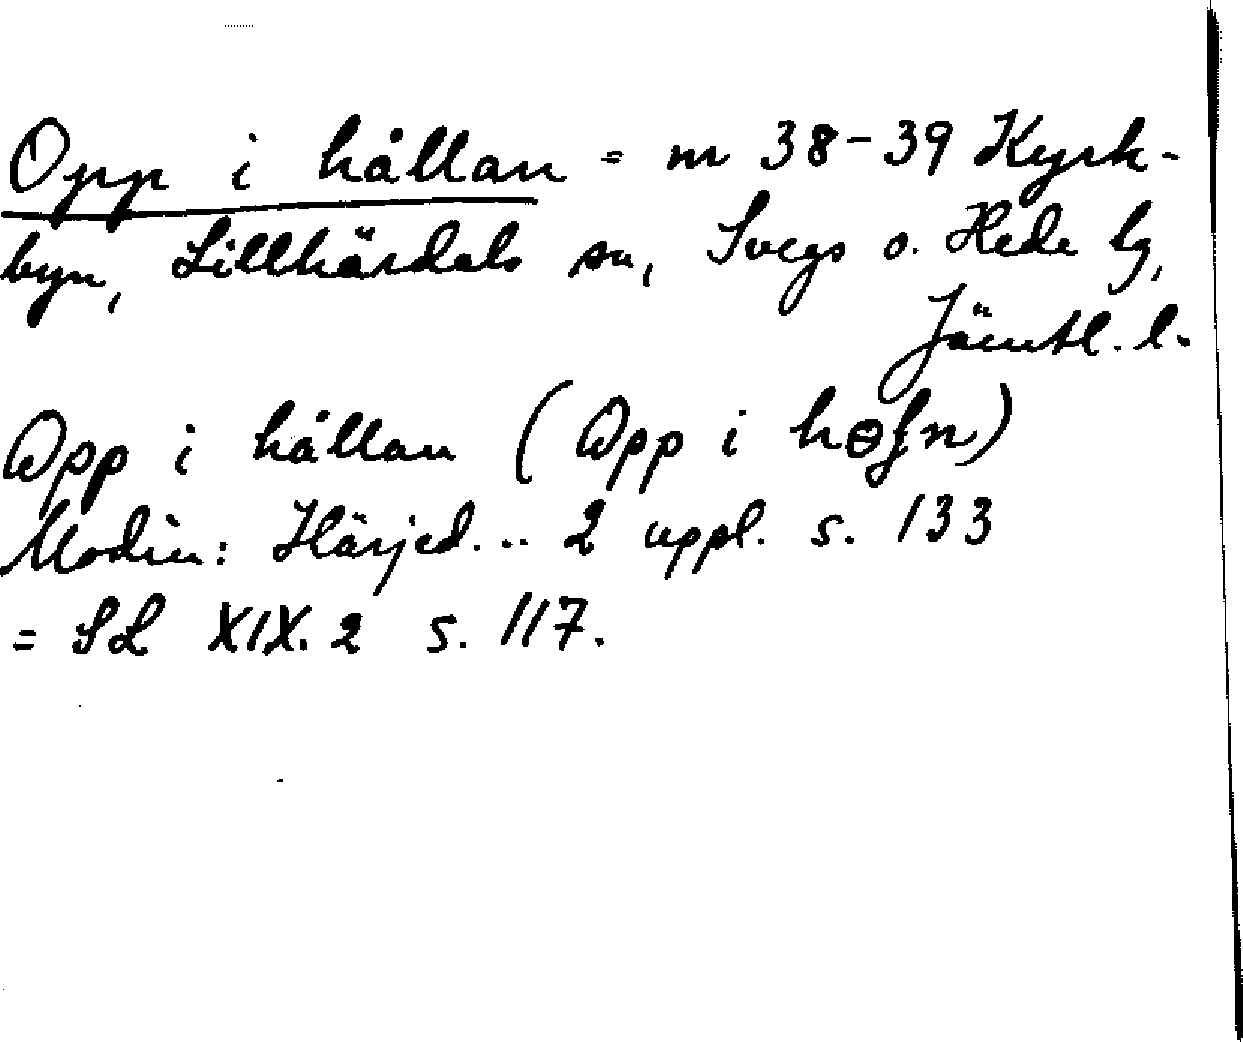 Opp i hållan = nr 38-39 Kyrk-
byn, Lillhärdals sn, Svegs o. Hede tg,
Jämtl. l.
Opp i hållan (Opp i hɵɭn)
Modin: Härjed... 2 uppl. s. 133
= SL XIX. 2 s. 117.